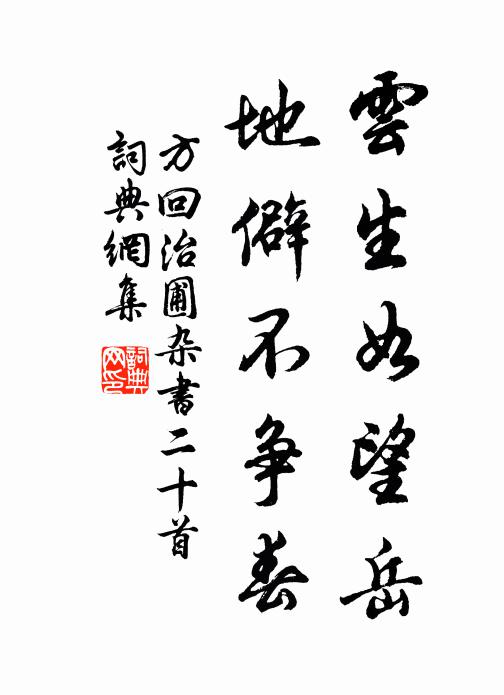 雲生如望岳
地僻不争春
方回治圃杂書二十首
詞典網集
詞典网印